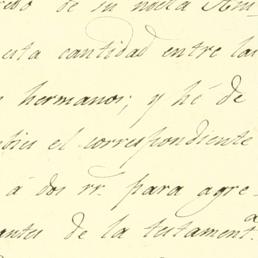 de su nueta
esta cantidad entre las
hermanos; y hé de
el correspondiente
á dos rr. para agre-
de la testament.ª